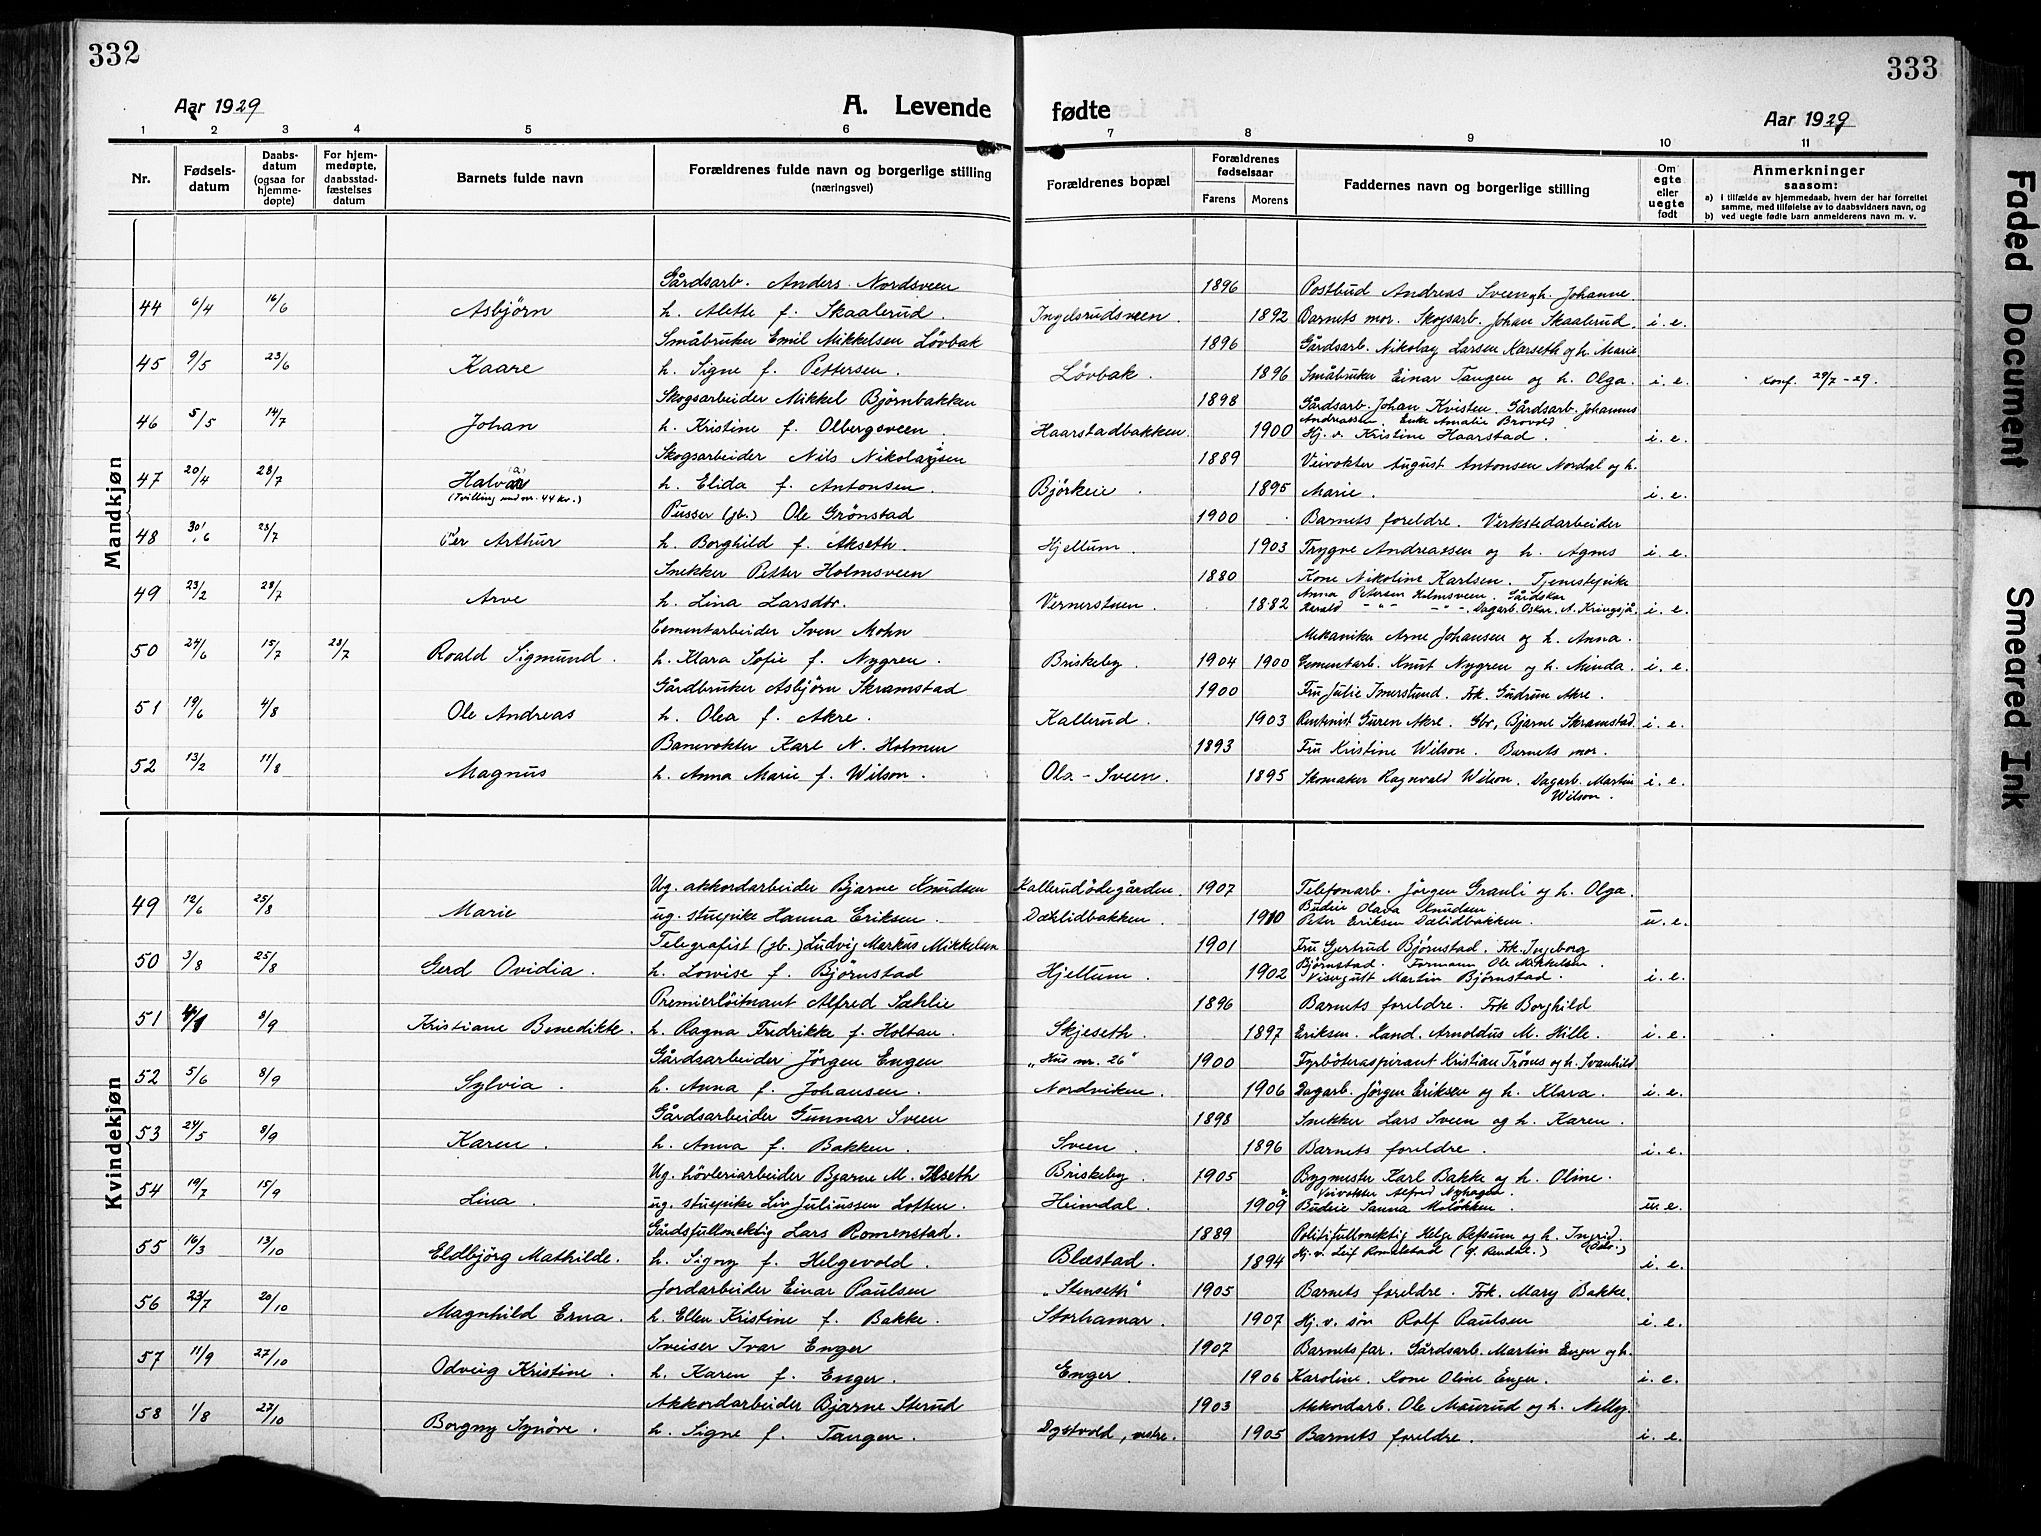 332
Aar 1929
A. Levende
1 2 3 4 5 6
Nr.
Fødsels-
datum
Daabs-
datum
(ogsaa for
hjemme-
døpte)
For hjem-
medøpte,
daabsstad-
fæstelses
datum
Barnets fulde navn
Forældrenes fulde navn og borgerlige stilling
(næringsvei)
Mandkjøn
Gårdsarb. Anders Nordsveen
44 6/4 16/6 Asbjørn h. Alette f. Skaalerud.
Småbruker Emil Mikkelsen Løvbak
45 9/5 23/6 Kaare h. Signe f. Pettersen.
Skogsarbeider Mikkel Bjørnbakken
46 5/5 14/7 Johan h. Kristine f. Olbergsveen.
Skogsarbeider Nils Nikolaisen
47 20/4 28/7 Halvar h. Elida f. Antonsen.
(Tvilling med nr. 44 Kv.)
Pusser (jb.) Ole Grønstad
48 30/6 28/7 Per Arthur h. Borghild f. Akseth.
Snekker Petter Holmsveen
49 23/2 28/7 Arve h. Lina Larsdtr.
Cementarbeider Sven Mohn
50 24/6 15/7 28/7 Roald Sigmund. h. Klara Sofie f. Nygren.
Gårdbruker Asbjørn Skramstad
51 19/6 4/8 Ole Andreas h. Olea f. Akre.
Banevokter Karl N. Holmen
52 13/2 11/8 Magnus h. Anna Marie f. Wilson.
Kvindekjøn
Ug. akkordarbeider Bjarne Knudsen
49 12/6 25/8 Marie ug. stuepike Hanna Eriksen.
Telegrafist (jb.) Ludvig Markus Mikkelsen
50 3/8 25/8 Gerd Ovidia. h. Lovise f. Bjørnstad
Premierløitnant Alfred Sæhlie
51 8/9 Kristiane Benedikte. h. Ragna Fredrikke f. Holtan.
Gårdsarbeider Jørgen Engen
52 5/6 8/9 Sylvia. h. Anna f. Johansen.
Gårdsarbeider Gunnar Sveen
53 24/5 8/9 Karen. h. Anna f. Bakken.
Ug. høvleriarbeider Bjarne M.
54 19/7 15/9 Lina. ug. stuepike Liv Juliussen Lotten.
Gårdsfullmektig Lars Romenstad.
55 16/3 13/10 Eldbjørg Mathilde. h. Signy f. Helgevold.
Jordarbeider Einar Paulsen
56 23/7 20/10 Magnhild Erna. h. Ellen Kristine f. Bakke.
Sveiser Ivar Enger
57 11/9 27/10 Odveig Kristine. h. Karen f. Enger.
Akkordarbeider Bjarne Sterud
58 1/8 27/10 Borgny Synøve. h. Signe f. Tangen.
333
fødte
Aar 1929
7 8 9 10 11
Forældrenes bopæl
Forældrenes
fødselsaar
Farens Morens
Faddernes navn og borgerlige stilling
Om
egte
eller
uegte
født
Anmerkninger
saasom:
a) I tilfælde av hjemmedaab, hvem der har forrettet
samme, med tilføielse av to daabsvidners navn, og
b) ved uegte fødte barn anmelderens navn m. v.
1896 Postbud Andreas Sveen og h. Johanne
Ingelsrudsveen. 1892 Barnets mor. Skogsarb. Johan Skaalerud. i. e.
1896 Gårdsarb. Nikolay Larsen Karseth og h. Marie
Løvbak. 1896 Småbruker Einar Tangen og h. Olga. i. e. Konf. 29/7-29.
1898 Gårdsarb. Johan Kvisten. Gårdsarb. Johannes
Andreassen. Enke Amalie Brovold
Haarstadbakken 1900 Hj. v. Kristine Haarstad. i. e.
1889 Veivokter August Antonsen Nordal og h.
Bjørkeie. 1895 Marie. i. e.
1900 Barnets foreldre. Verkstedarbeider
Hjellum. 1903 Trygve Andreassen og h. Agnes i. e.
1880 Kone Nikoline Karlsen. Tjenestepike
Anna Petersen Holmsveen. Gårdskar
Vernerstuen. 1882 Harald -"- -"-. Dagarb. Oskar. A. Kringsjå. i. e.
Mekaniker Arne Johansen og h. Anna.
Briskeby. 1904 1900 Cementarb. Knut Nygren og h. Minda. i. e.
1900 Fru Julie Imerslund. Frk. Gudrun Akre.
Kallerud. 1903 Guren Akre. Gbr. Bjarne Skramstad. i. e.
1893 Fru Kristine Wilson. Barnets mor.
Ols.-Sveen. 1895 Skomaker Ragnvald Wilson. Dagarb. Martin i. e.
Wilson.
Kallerudødegården. 1907 Telefonarb. Jørgen Granli og h. Olga.
Budeie Olava Knudsen.
Dælidbakken. 1910 Peter Eriksen Dælidbakken. u. e.
1901 Fru Gertrud Bjørnstad. Frk. Ingeborg
Bjørnstad. Formann Ole Mikkelsen.
Hjellum. 1902 Visergutt Martin Bjørnstad. i. e.
1896 Barnets foreldre. Frk. Borghild
Skjeseth. 1897 Eriksen. Cand. Arnoldus M. Hille. i. e.
„Hus nr. 26" 1900 Fyrbøteraspirant Kristian Trønes og h. Svanhild
Nordviken. 1906 Dagarb. Jørgen Eriksen og h. Klara. i. e.
1898 Snekker Lars Sveen og h. Karen.
Sveen. 1896 Barnets foreldre. i. e.
Briskeby 1905 Bygmester Karl Bakke og h. Oline.
Veivokter Alfred Nyhagen.
Heimdal. 1909 Budeie Sanna Moløkken. u. e.
1889 Politifullmektig Helge Refsum og h. Ingrid. (Oslo.)
Hj. v. Leif Romenstad (Ø. Rendal.)
Blæstad. 1894 i. e.
„Stenseth" 1905 Barnets foreldre. Frk. Mary Bakke.
Storhamar. 1907 Hj. v. søn Rolf Paulsen i. e.
1907 Barnets far. Gårdsarb. Martin Enger og h.
Enger. 1906 Karoline. Kone Oline Enger. i. e.
1903 Akkordarb. Ole Maurud og h. Nelly.
Dystvold, vestre. 1905 Barnets foreldre. i. e.
Faded Document
Smeared Ink